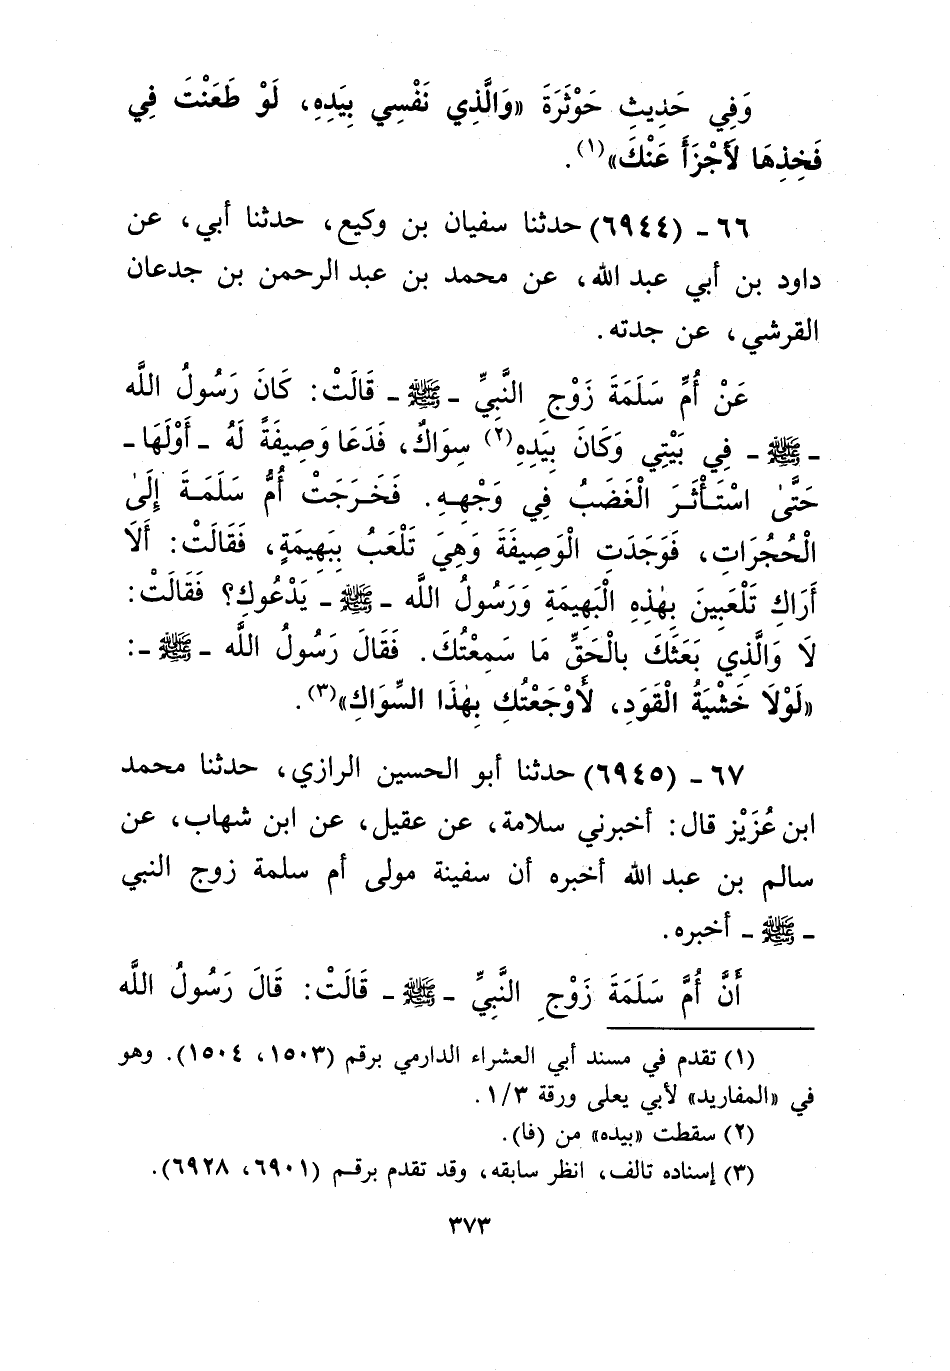 وَفِي حَدِيثِ حَوْثَرَةَ «وَالَّذِي نَفْسِي بِيَدِهِ، لَوْ طَعَنْتَ فِي
فَخِذِهَا لَأَجْزَأَ عَنْكَ»(١).
٦٦ - (٦٩٤٤) حدثنا سفيان بن وكيع، حدثنا أبي، عن
داود بن أبي عبد الله، عن محمد بن عبد الرحمن بن جدعان
القرشي، عن جدته.
عَنْ أُمِّ سَلَمَةَ زَوْجِ النَّبِيِّ - ﷺ - قَالَتْ: كَانَ رَسُولُ اللَّه
- ﷺ - فِي بَيْتِي وَكَانَ بِيَدِهِ(٢) سِوَاكٌ، فَدَعَا وَصِيفَةً لَهُ - أَوْلَهَا -
حَتَّىٰ اسْتَأْثَرَ الْغَضَبُ فِي وَجْهِهِ. فَخَرَجَتْ أُمُّ سَلَمَةَ إِلَىٰ
الْحُجُرَاتِ، فَوَجَدَتِ الْوَصِيفَةَ وَهِيَ تَلْعَبُ بِبَهِيمَةٍ، فَقَالَتْ: أَلَا
أَرَاكِ تَلْعَبِينَ بِهٰذِهِ الْبَهِيمَةِ وَرَسُولُ اللَّه - ﷺ - يَدْعُوكِ؟ فَقَالَتْ:
لَا وَالَّذِي بَعَثَكَ بِالْحَقِّ مَا سَمِعْتُكَ. فَقَالَ رَسُولُ اللَّه - ﷺ -:
«لَوْلَا خَشْيَةُ الْقَوَدِ، لَأَوْجَعْتُكِ بِهٰذَا السِّوَاكِ»(٣).
٦٧ - (٦٩٤٥) حدثنا أبو الحسين الرازي، حدثنا محمد
ابن عُزَيْز قال: أخبرني سلامة، عن عقيل، عن ابن شهاب، عن
سالم بن عبد الله أخبره أن سفينة مولى أم سلمة زوج النبي
- ﷺ - أخبره.
أَنَّ أُمَّ سَلَمَةَ زَوْجِ النَّبِيِّ - ﷺ - قَالَتْ: قَالَ رَسُولُ اللَّه
(١) تقدم في مسند أبي العشراء الدارمي برقم (١٥٠٣، ١٥٠٤). وهو
في «المفاريد» لأبي يعلى ورقة ١/٣.
(٢) سقطت «بيده» من (فا).
(٣) إسناده تالف، انظر سابقه، وقد تقدم برقم (٦٩٠١، ٦٩٢٨).
٣٧٣